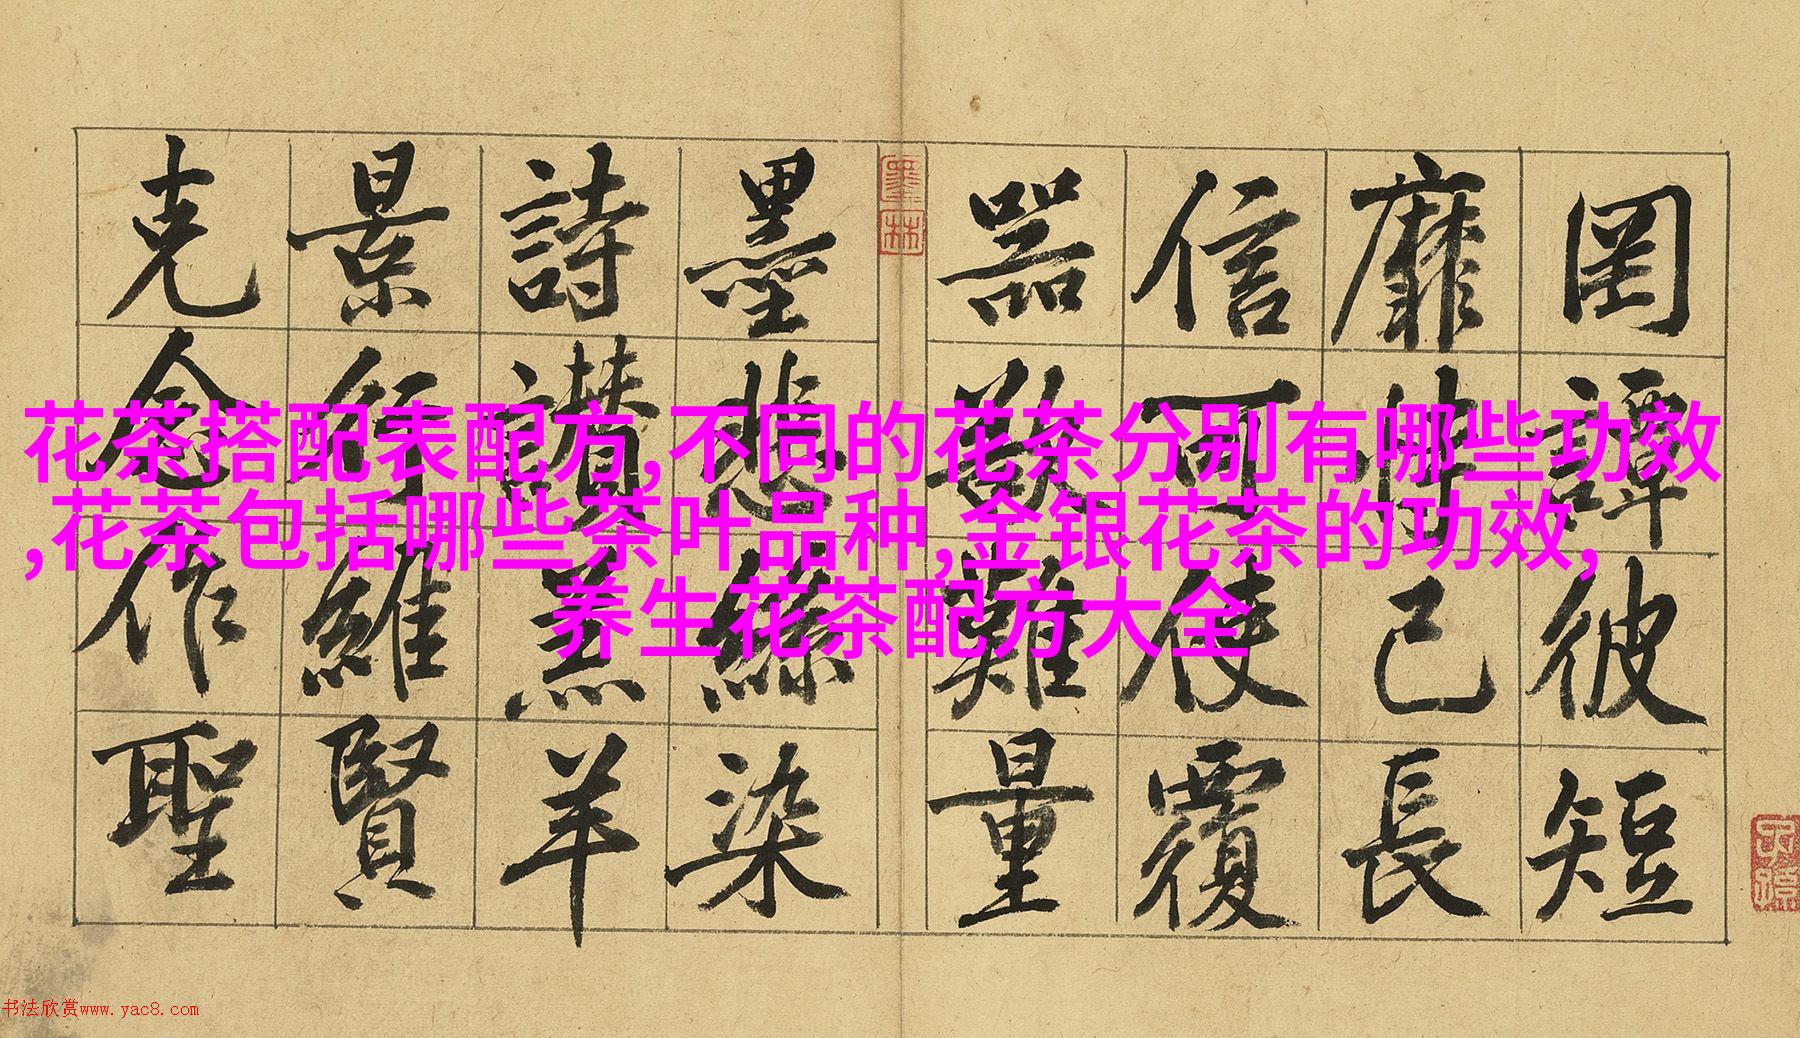 花茶搭配表配方,不同的花茶分别有哪些功效
,花茶包括哪些茶叶品种,金银花茶的功效,
养生花茶配方大全
罔譚彼短
靡恃己長
信可使覆
器欲難量
墨悲絲染
詩讚羔羊
景行維賢
克念作聖
墨林
子孫
书法欣赏www.yac8.com